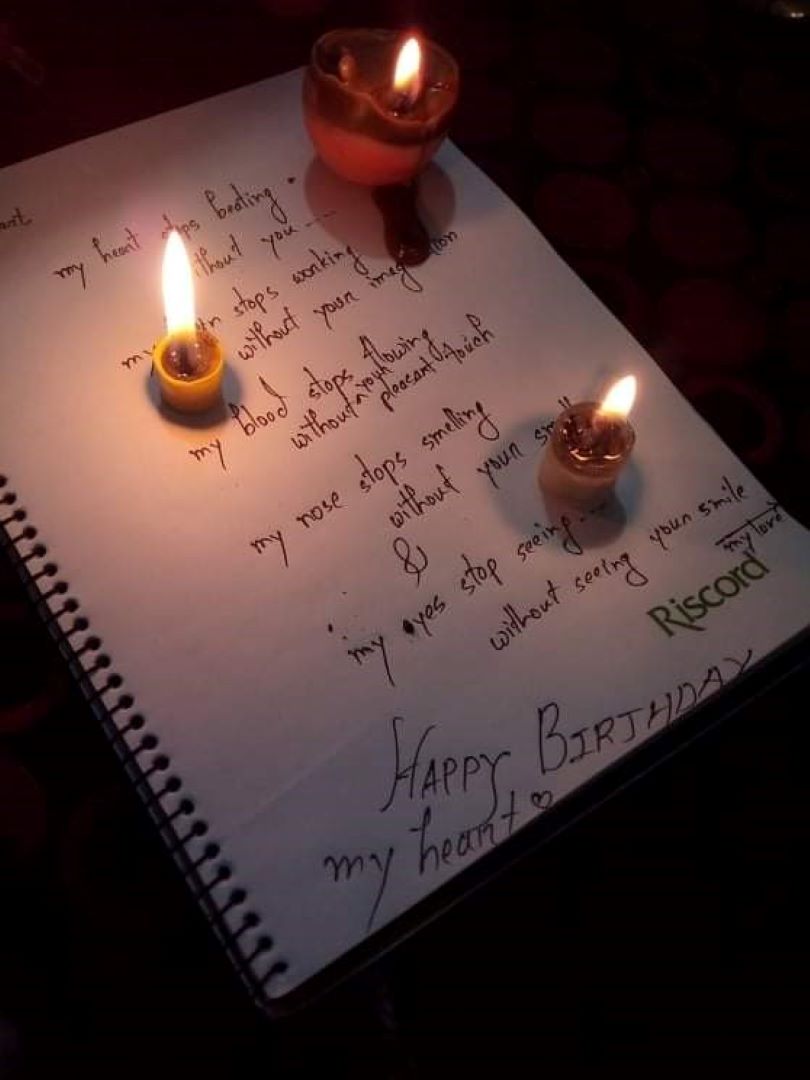 my heart stops beating
without you ---
my stops working
without your
my blood stops flowing
without your pleasant touch
my nose stops smelling
without your
&
my eyes stop seeing...
without seeing your smile
my lord
Riscord
HAPPY BIRTHDAY
my heart ♡